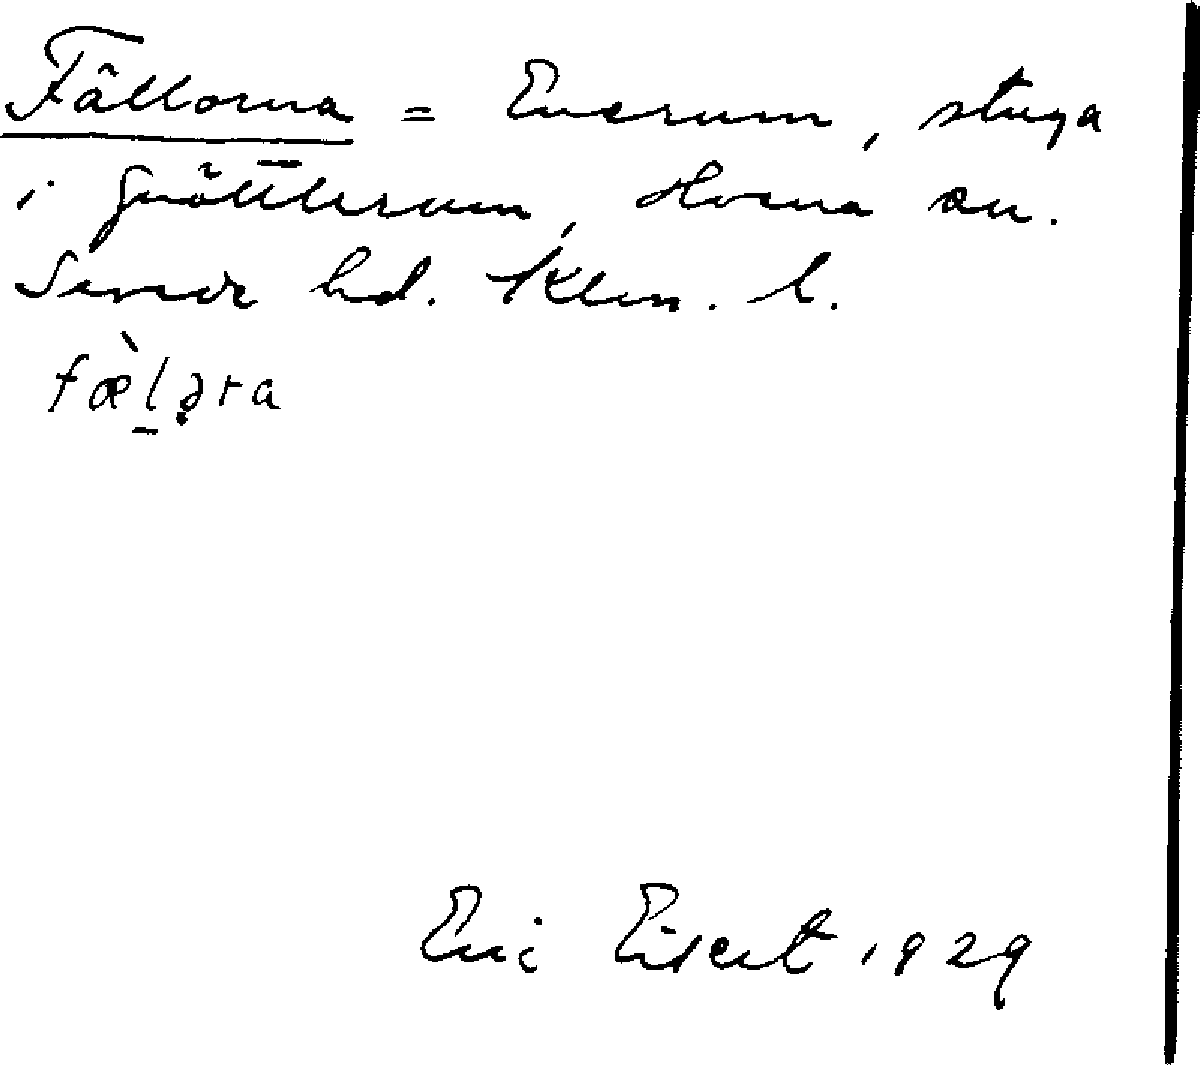 Fällorna = Enerum, stuga
i Gnöttlerum, Hvena sn.
Sevede hd. Klm. l.
fæ̀l̠ə̣ra
Eric 1929